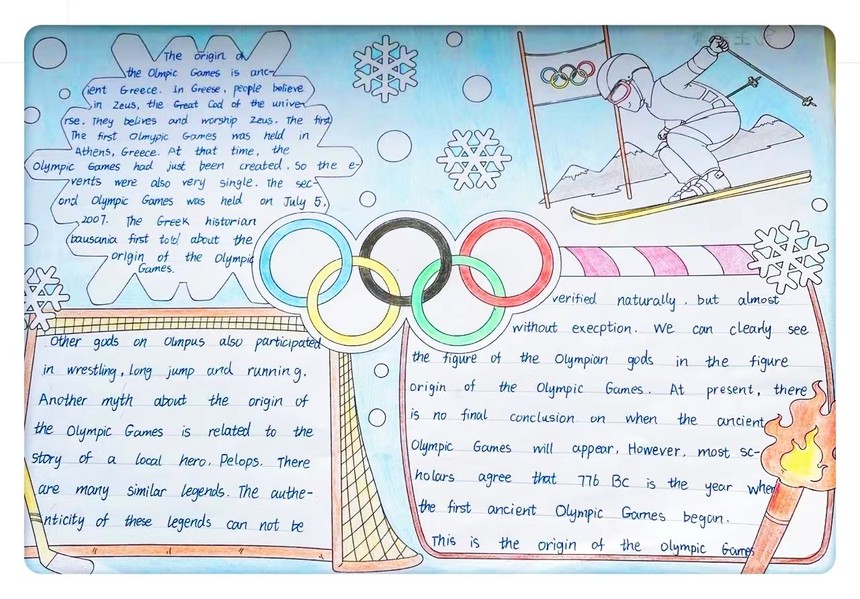 The origin of
the Olmpic Games is anc-
ient Greece. In Greese, people believe
in Zeus, the Great God of the unive-
rse. They belives and worship Zeus. The first
The first Olmypic Games was held in
Athens, Greece. At that time, the
Olympic Games had just been created. So the e-
vents were also very single. The sec-
ond Olympic Games was held on July 5,
2007. The Greek historian
pausania first told about the
origin of the Olympic
Games.
Other gods on Olmpus also participated
in wrestling, long jump and running.
Another myth about the origin of
the Olympic Games is related to the
story of a local hero, Pelops. There
are many similar legends. The authe-
nticity of these legends can not be
verified naturally, but almost
without execption. We can clearly see
the figure of the Olympian gods in the figure
origin of the Olympic Games. At present, there
is no final conclusion on when the ancient
Olympic Games will appear. However, most sc-
holars agree that 776 BC is the year when
the first ancient Olympic Games began.
This is the origin of the Olympic Games